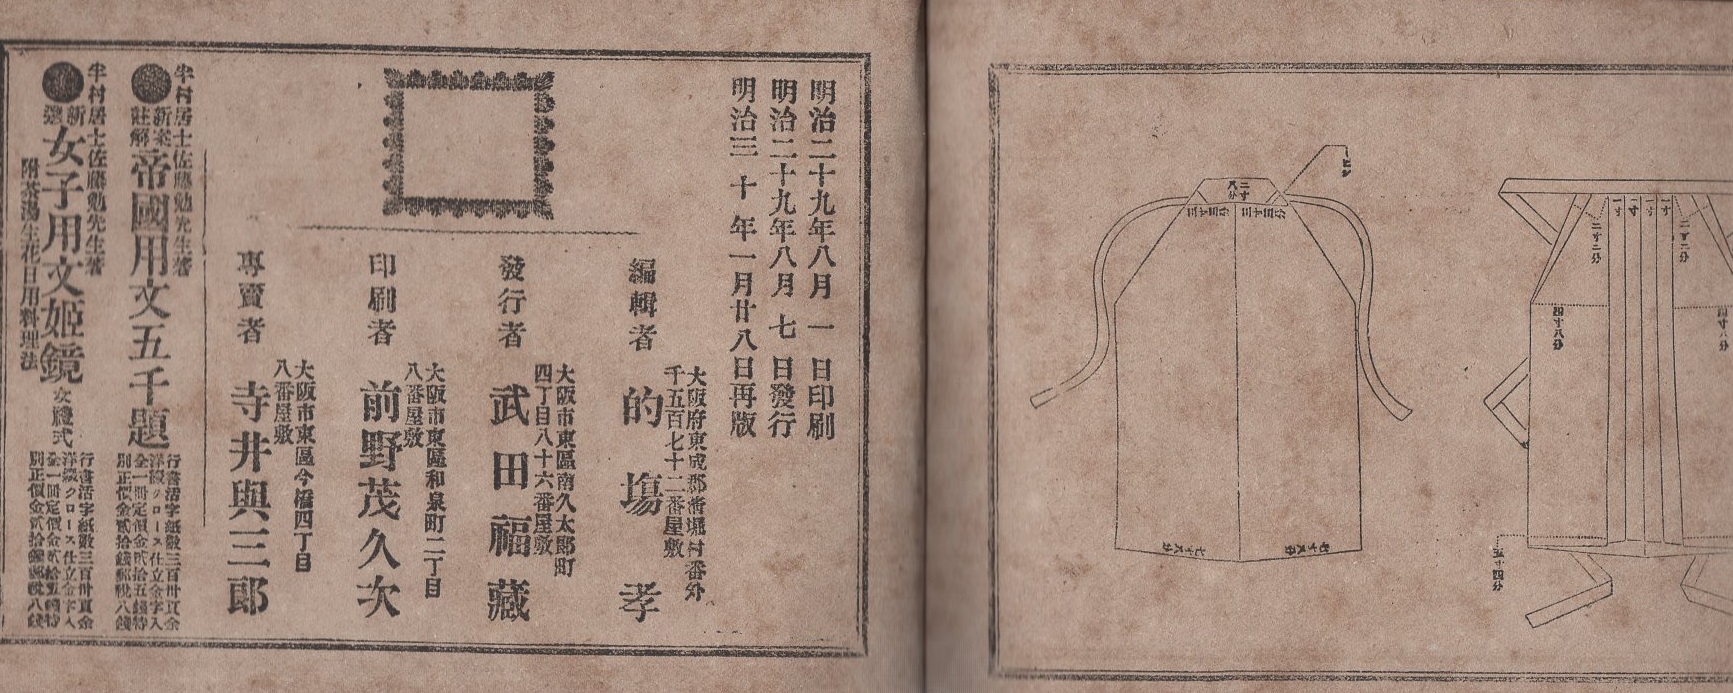 明治二十九年八月一日印刷
明治二十九年八月七日發行
明治三十年一月廿八日再版
大阪府東成郡
千五百七十二番屋敷
編輯者 的塲孝
大阪市東區南久太郎町
四丁目八十六番屋敷
發行者 武田福藏
大阪市東區和泉町二丁目
八番屋敷
印刷者 前野茂久次
大阪市東區今橋四丁目
八番屋敷
專賣者 寺井與三郎
半村居士佐藤勉先生著
新案
註解
帝國用文五千題
行書活字紙數三百卅頁余
洋綴クロース仕立金字入
全一冊定價金貳拾五錢特
別正價金貳拾錢郵稅八錢
半村居士佐藤勉先生著
新
選
女子用文姬鏡 女禮式
附茶湯生花日用料理法
行書活字紙數三百卅頁余
洋綴クロース仕立金字入
全一冊定價金貳拾五錢特
別正價金貳拾錢郵稅八錢
二寸
八分
三寸三分
三寸三分
七寸八分
七寸八分
一寸
一寸
一寸
一寸
二寸二分
二寸二分
四寸八分
四寸八分